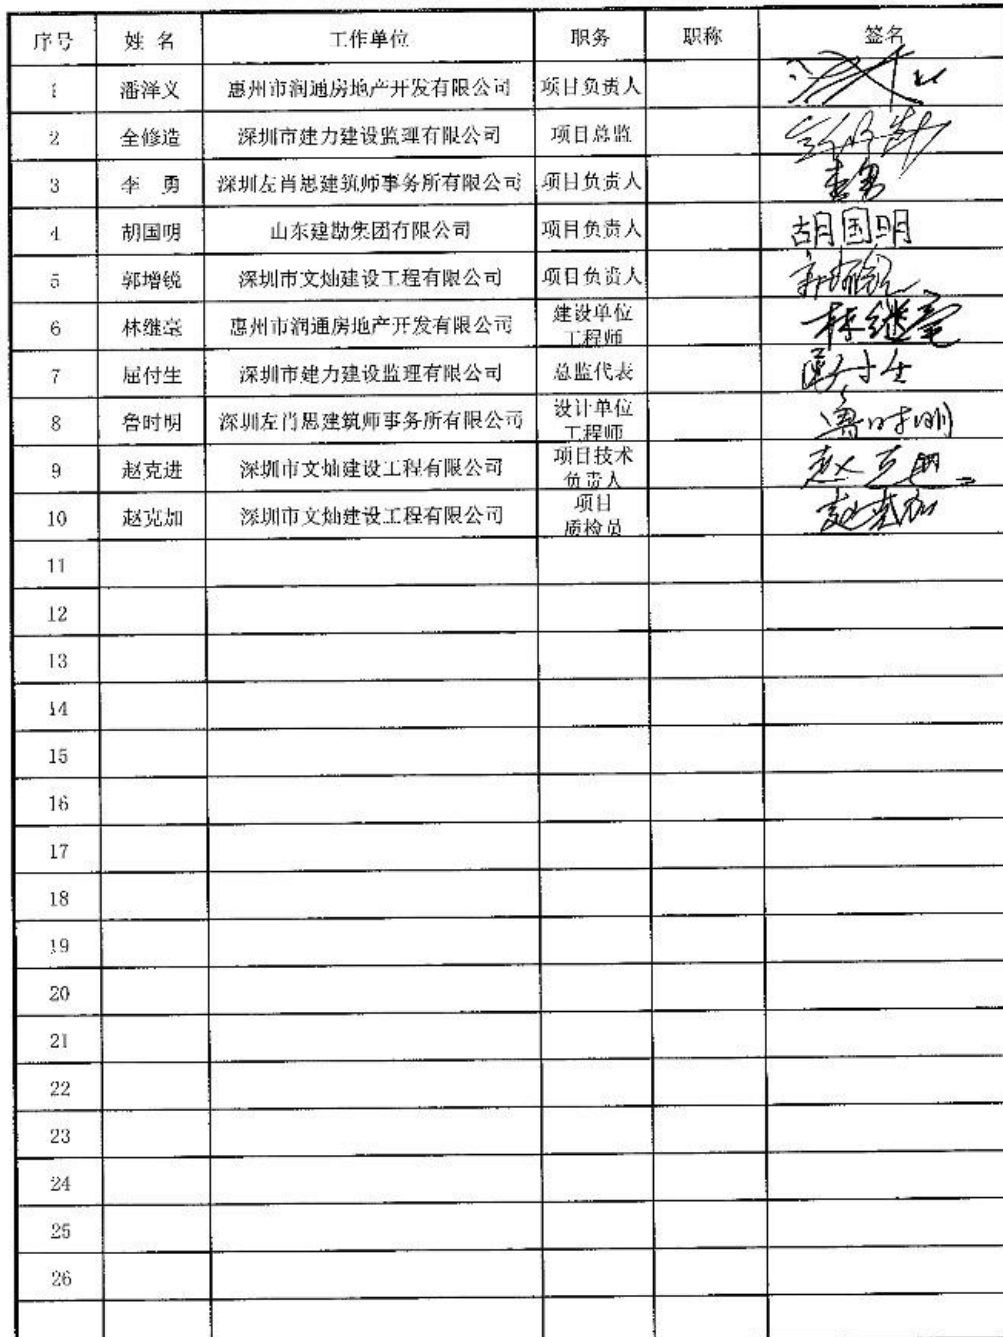 序号 姓 名 工作单位 职务 职称 签名
1 潘洋义 惠州市润通房地产开发有限公司 项目负责人
2 全修造 深圳市建力建设监理有限公司 项目总监
3 李 勇 深圳左肖思建筑师事务所有限公司 项目负责人 李勇
4 胡国明 山东建勘集团有限公司 项目负责人 胡国明
5 郭增锐 深圳市文灿建设工程有限公司 项目负责人
6 林继毫 惠州市润通房地产开发有限公司 建设单位 林继毫
工程师
7 屈付生 深圳市建力建设监理有限公司 总监代表 屈付生
8 鲁时明 深圳左肖思建筑师事务所有限公司 设计单位 鲁时明
工程师
9 赵克进 深圳市文灿建设工程有限公司 项目技术 赵克进
负责人
10 赵克加 深圳市文灿建设工程有限公司 项目 赵克加
质检员
11
12
13
14
15
16
17
18
19
20
21
22
23
24
25
26